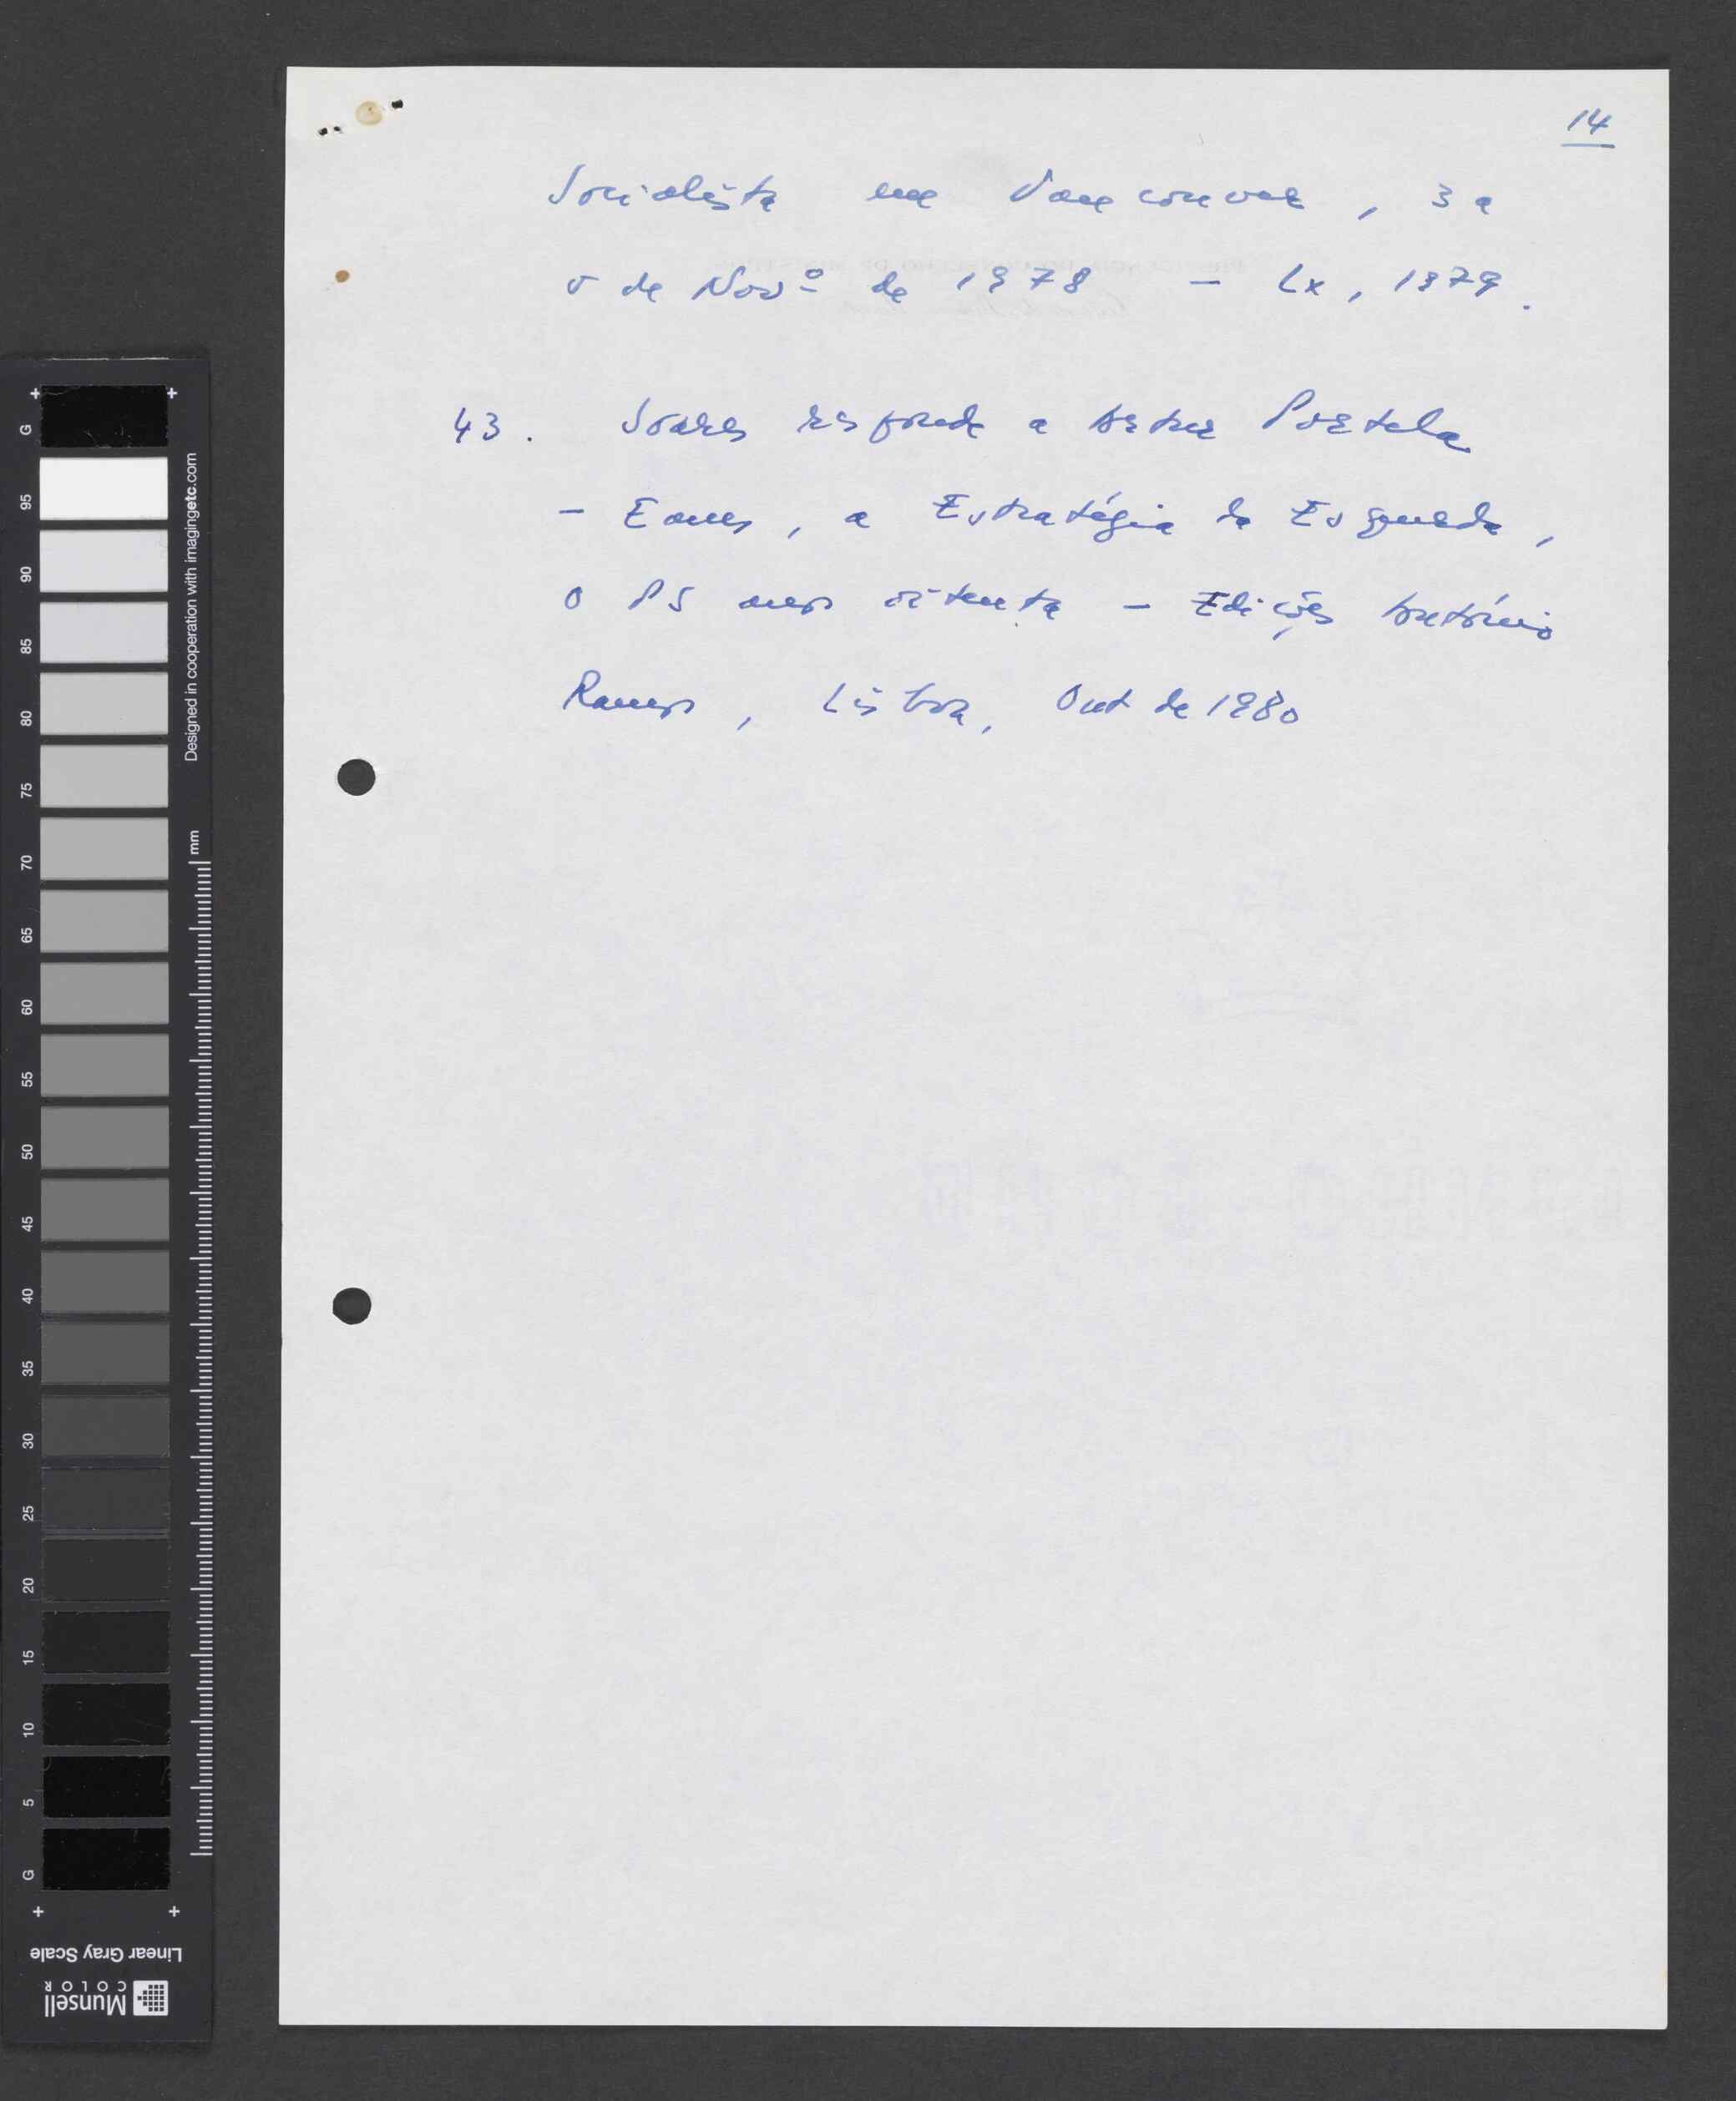 14
Socialista em Vancouver, 3 a
5 de Novº de 1978 - Lx, 1979.
43. Soares responde a Artur Portela
- Eanes, a Estratégia da Esquerda,
O PS anos oitenta - Edições António
Ramos, Lisboa, Out de 1980
G
95
90
85
80
75
70
65
60
55
50
45
40
35
30
25
20
15
10
5
G
Designed in cooperation with imagingetc.com
mm
Linear Gray Scale
Munsell
COLOR